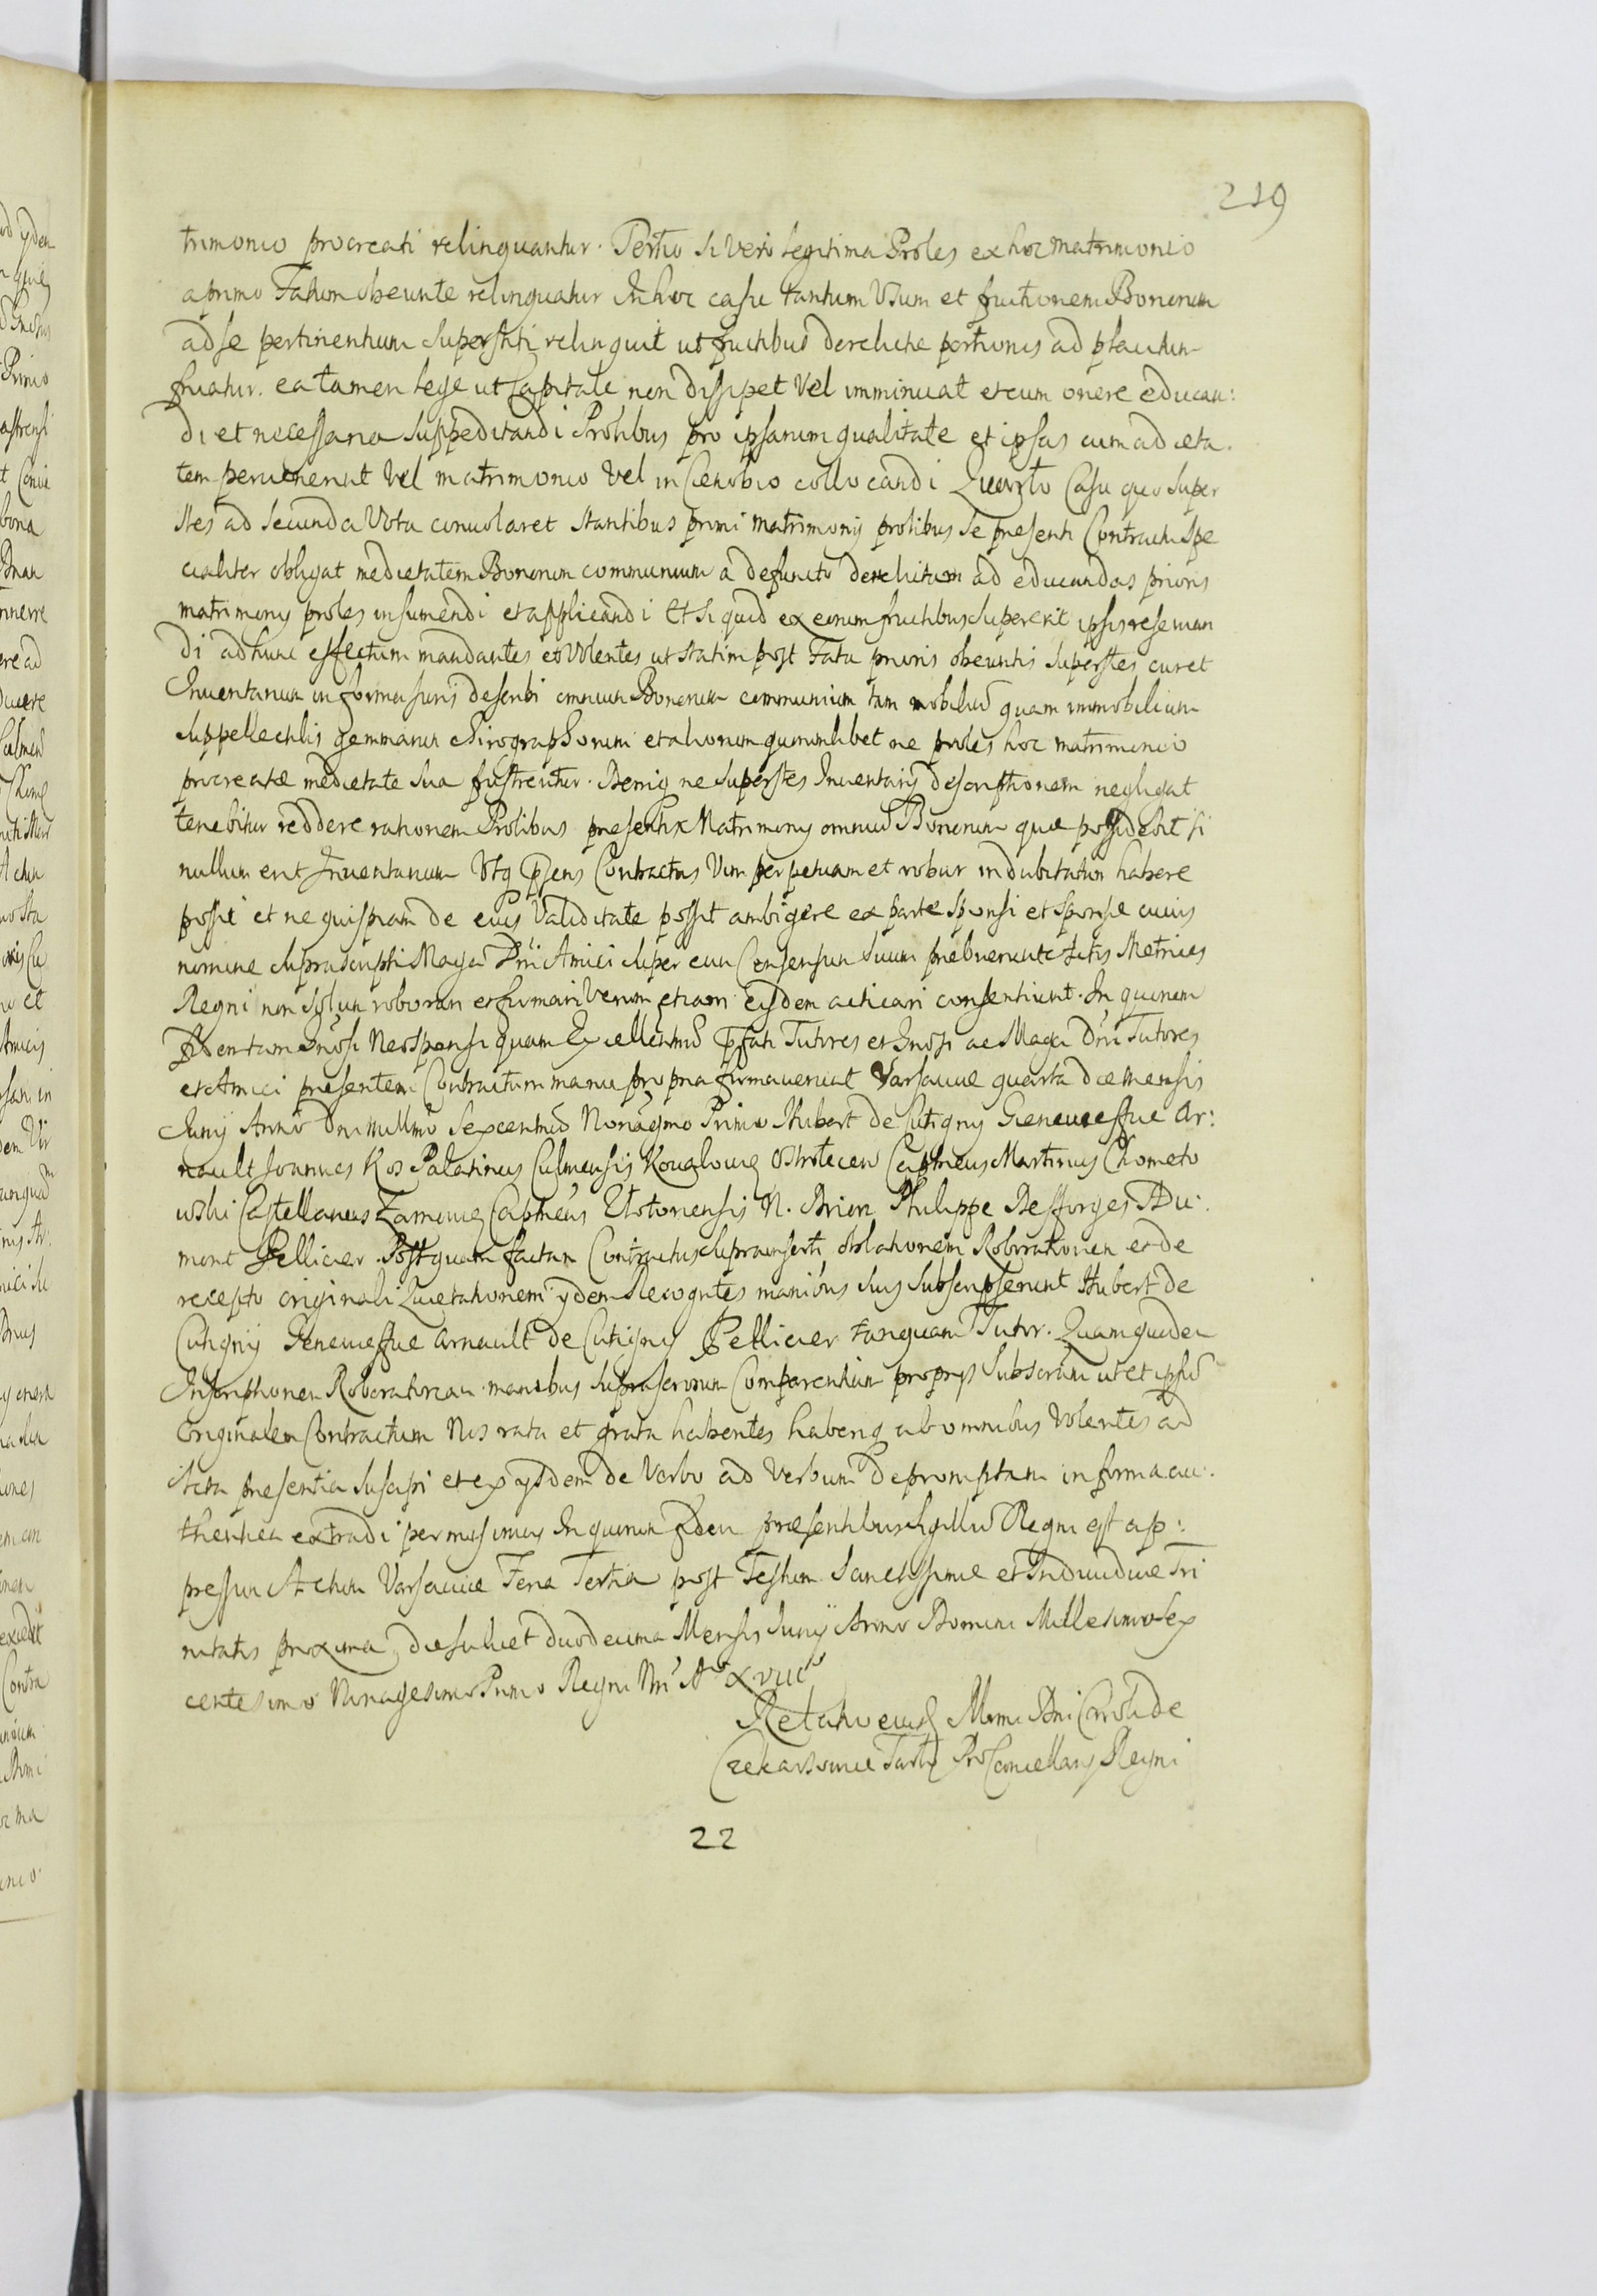 219
trimonio procreati relinquantur. Tertio si Vero legitima Proles ex hoc Matrimonio
a primo Fatum obeunte relinquatur In hoc casu tantum Usum et fruitionem Bonorum
ad se pertinentium Superstiti relinquit ut fructibus derelictæ portionis ad placitum
fruatur. ea tamen lege ut Capitale non dissipet Vel imminuat et cum onere educan:
di et necessaria Suppeditandi Prolibus pro ipsarum qualitate et ipsas cum ad æta.
tem pervenerint Vel matrimonio Vel in Cenobio collocandi Quarto Casu quo Super
stes ad secunda Vota convolaret stantibus primi Matrimonij prolibus se presenti Contractu Spe
cialiter obligat medietatem Bonorum communium a defuncto derelictam ad educandas prioris
matrimonij proles insumendi et applicandi Et si quid ex eorum fructibus Supererit ipsis reservan
di ad hunc effectum mandantes et Volentes ut statim post Fata prioris obeuntis Superstes curet
Inventarium in forma Juris describi omnium Bonorum communium tam mobilium quam immobilium
Suppellectilis gemmarum Chirographorum et aliorum quorumlibet ne proles hoc matrimonio
procreatæ medietate sua frustrentur. Deniq ne Superstes Inventarij descriptionem negligat
tenebitur reddere rationem Prolibus presentis Matrimonij omnium Bonorum quæ possidebit si
nullum erit Inventarium Utq Psens Contractus Vim perpetuam et robur indubitatum habere
possit et ne quispiam de eius Validitate possit ambigere ex parte Sponsi et Sponsæ cuius
nomine Suprascripti Magci Dni Amici Super eum Consensum Suum prebuerunt Actis Metrices
Regni non solum roborari et firmari Verum etiam eisdem acticari consentiunt. In quorum
fidem tam Gnosi Neosponsi quam Excellentmus Pfati Tutores et Gnosi ac Magci Dni Tutores
et Amici presentem Contractum manu propria firmaverunt Varsaviæ quarta die mensis
Junij Anno Dni Millmo Sexcentmo Nonagmo Primo Hubert de Cutigny Genevieffue Ar:
nault Joannes Kos Palatinus Culmensis Capneus Martinus Chometo
wski Castellanus Capneus N. Brion Philippe Desforges Du:
mont Pellicier. Post quam factam Contractus Suprainserti oblationem Roborationem et de
recepto originali Quietationem ydem Recogntes manibus Suis Subscripserunt Hubert de
Cutigny Genevieffue Arnault de Cutigny Pellicier tanquam Tutor. Quam quidem
Inscriptionem Roboratoriam manibus Comparentium proprijs Subscriptam ut et ipsum
Originalem Contractum Nos rata et grata habentes haberiq ab omnibus Volentes ad
Acta presentia Suscipi et ex ysdem de Verbo ad Verbum Depromptam in forma au:
thentica extradi permisimus In quorum fidem præsentibus Sigillum Regni est ap:
pressum Actum Varsaviæ Feria Tertia post Festum Sanctissimæ et Individuæ Tri
nitatis proxima, die scilicet duodecima Mensis Junij Anno Domini Millesimo Sex
centesimo Nonagesimo Primo Regni Nri Ao XVIIIo
Relatio eiusd Mami Dni Caroli de
Tarło ProCancellarij Regni
22